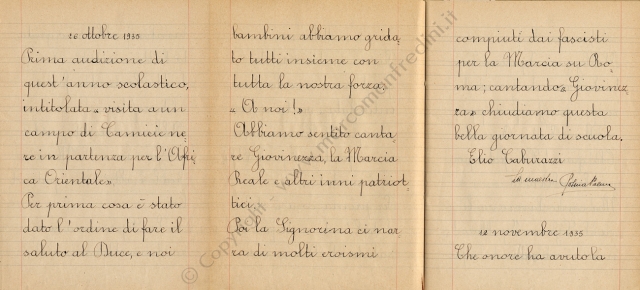 26 ottobre 1935
Prima audizione di
quest'anno scolastico,
intitolata « visita a un
campo di Camicie ne
re in partenza per l'Afri
ca Orientale»
Per prima cosa è stato
dato l'ordine di fare il
saluto al Duce, e noi
bambini abbiamo grida,
to tutti insieme con
tutta la nostra forza:
« A noi!»
Abbiamo sentito canta
re Giovinezza, la Marcia
Reale e altri inni patriot
tici.
Poi la Signorina ci nar
ra di molti eroismi
compiuti dai fascisti
per la Marcia su Ro
ma; cantando « Giovinez
za» chiudiamo questa
bella giornata di scuola.
Elio Caburazzi
la maestra
12 novembre 1935
Che onore ha avuto la
© Copyright - www.marcomanfredini.it